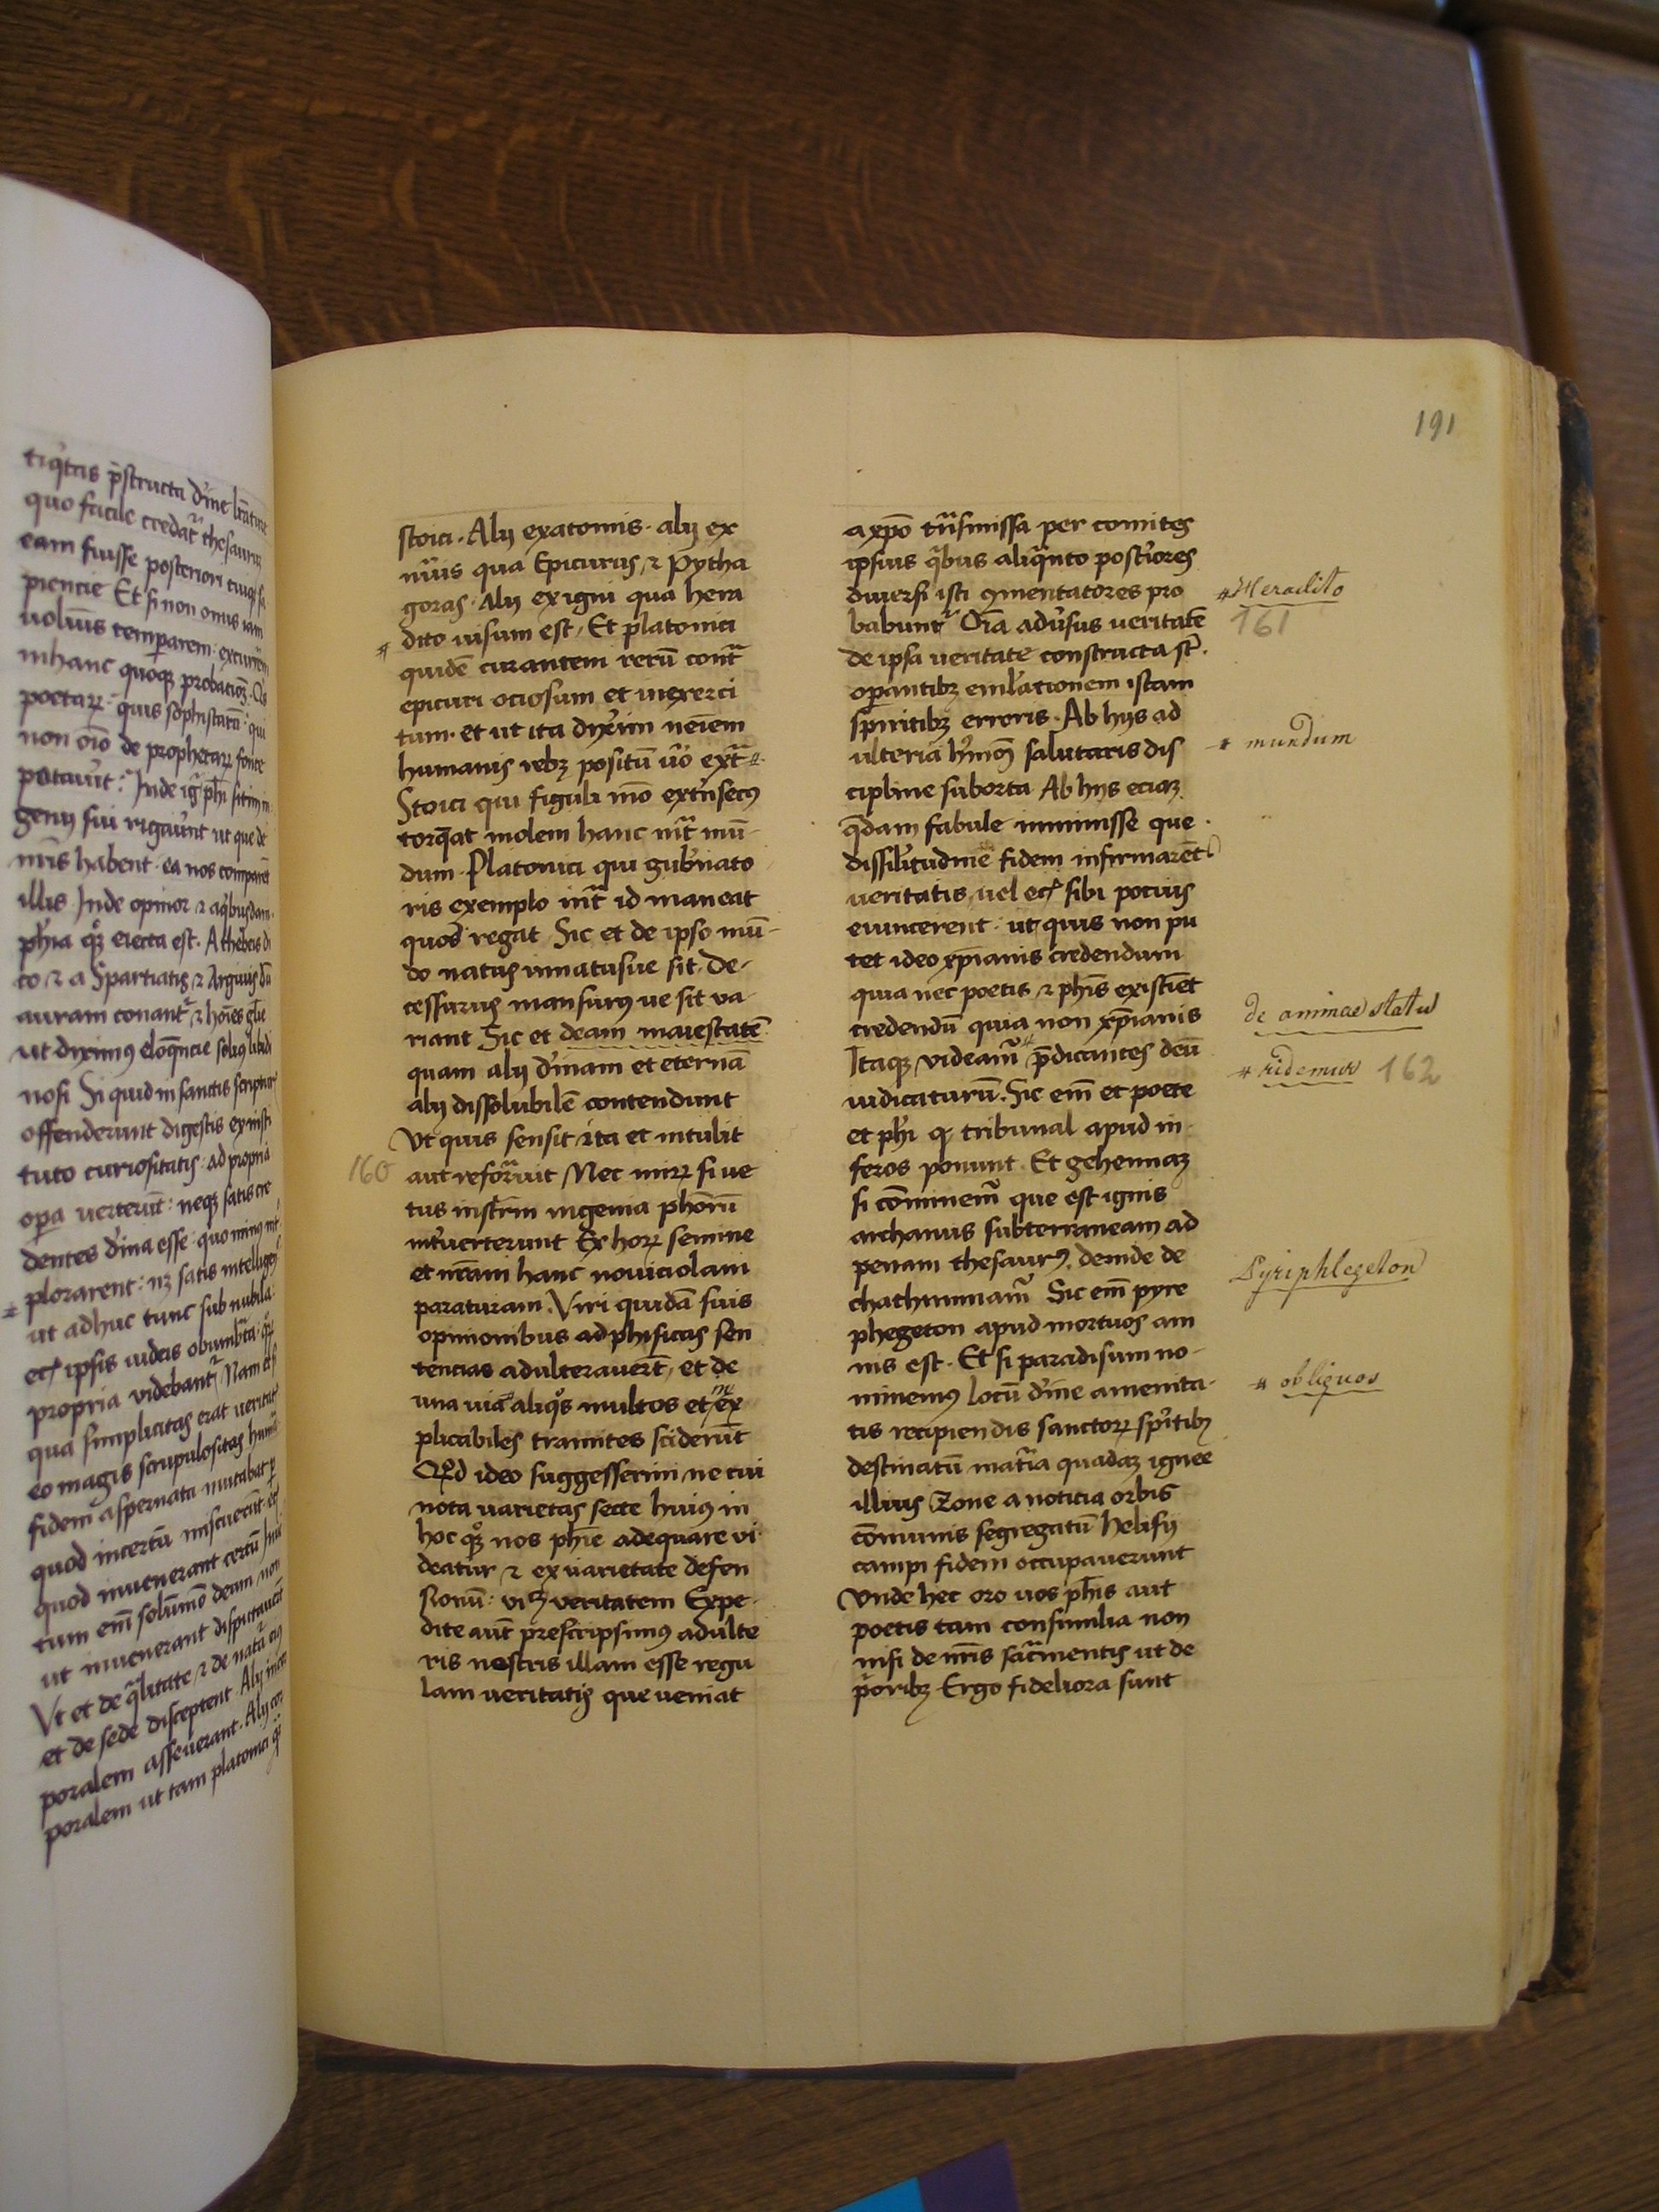 tiq̄tas p̄structa d'ine
quo facile credat᷑ thesaurū
eam fuisse posteriori cuiq̨
piencie Et si non onus iam
uolumīs temperarem excurrerē
inhanc quoq̨ probatioē. Q's
poetaꝝ quis sophistarū qui
non oīo de prophetaꝝ fonte
potauit: Inde ig̃ ph̄i sitim in
genij sui rigauer̄t ut que de
nr̄is habent ea nos comparēt
illis Inde opinor ⁊ aq̇busdam
ph̄ia qq̨ eiecta est. A thebeis di
co ⁊ a Spartiatis ⁊ Arguiis
auram conant᷑ ⁊ hoīes glīe
ut diximꝰ eloq̄ncie solius libidi
nosi Si quid in sanctis scriptur
offenderunt digestis ex insti
tuto curiositatis ad propria
opera uerterūt: neq̨ satis cre
dentes d'ina esse quo minus int'
plorarent: nꝫ satis intelligen
ut adhuc tunc sub nubila
ec̄ ipsis iudeis obumbrata
propria videbant᷑ Nam et si
qua simplicitas erat ueritat
eo magis scrupulositas humā
fidem aspernata mutabat
quod incertū miscuerūt et
quod inuenerant certū
tum em̄ solūmo deum non
ut inuenerant disputauerūt
Vt et de q̄litate ⁊ de natā eiꝰ
et de sede disceptent Alij incor
poralem asseuerant. Alij cor
poralem ut tam platonici q̄
191
stoici. Alij exatomis. alij ex
nūis qua Epicurus, ⁊ Pytha
goras. Alij ex igni qua hera
dito uisum est, Et platonici
quidē curantem rerū contᵃ
epicuri ociosum et inexerci
tum. et ut ita dixerim neīem
humanis rebꝫ positū ūo extᵃ
Stoici qui figuli mō extr̄secꝰ
torq̄at molem hanc int̄ mū-
dum. Platonici qui gub'nato
ris exemplo int̄ id maneat
quos regat Sic et de ipso mū-
do natus innatusue sit. De-
cessurus mansurꝰue sit va-
riant Sic et deam maiestatē
quam alij d'inam et eternā
alij dissolubilē contendunt
Vt quis sensit ita et intulit
160
aut reformauit Nec mirꝝ si ue
tus instrm̄ ingenia phorū
int'uerterunt Ex hoꝝ semine
et nr̄am hanc nouiciolam
paraturam. Viri quidā suis
opinionibus ad phisicas sen
tencias adulterauerūt, et de
una uia aliq̊s multos et in ex
plicabiles tramites sciderūt
Qd̄ ideo suggesserim ne cui
nota uarietas secte huiꝰ in
hoc qq̨ nos phīe adequare vi
deatur ⁊ ex uarietate defen
sionū: viꝫ veritatem Expe
dite aūt prescripsimꝰ adulte
ris nostris illam esse regu
lam ueritatis que ueniat
a xp̄o trāsmissa per comites
ipsius q̇bus aliq̄nto post'iores
diuersi isti ꝯmentatores pro
babunt᷑ Oīa adūsus ueritatē
de ipsa ueritate constructa st̄.
operantibꝫ emulationem istam
spiritibꝫ erroris. Ab hijs ad
ulteria h'moī salutaris dis
cipline suborta Ab hijs eciaꝫ
q̄dam fabule inmisse que
dissilitudinē fidem infirmarēt
ueritatis, uel ec̄ sibi pocius
euincerent: ut quis non pu
tet ideo xp̄ianis credendum
quia nec poetis ⁊ ph̄is existiet
credendū quia non xp̄ianis
Itaq̨ videam᷑ p̄dicantes deū
iudicaturū. Sic em̄ et poete
et ph̄i q̨ tribunal apud in-
feros ponunt. Et gehennaꝫ
si com̄inem᷑ que est ignis
archanus subterraneam ad
penam thesaurꝰ, deinde de
chachinnam᷑ Sic em̄ pyre
phegeton apud mortuos am
nis est. Et si paradisum no-
minemus locū d'ine amenita-
tis recipiendis sanctoꝝ sp̄itibꝫ
destinatū mat'ia quadaꝫ ignee
illius Zone a noticia orbis
com̄unis segregatū helisij
campi fidem occupauerunt
Vnde hec oro uos ph̄is aut
poetis tam consimilia non
nisi de nr̄is sacr̄mentis ut de
p̄oribꝫ Ergo fideliora sunt
* Heraclito
161
* mundum
de animae statu
* ridemur 162
Pyriphlegeton
* obliquos